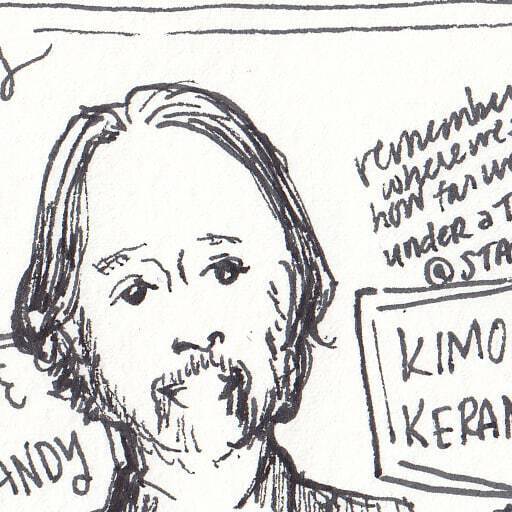 remember
where we
how far w
under a T
@STA
KIMO
KERAM
E
ANDY